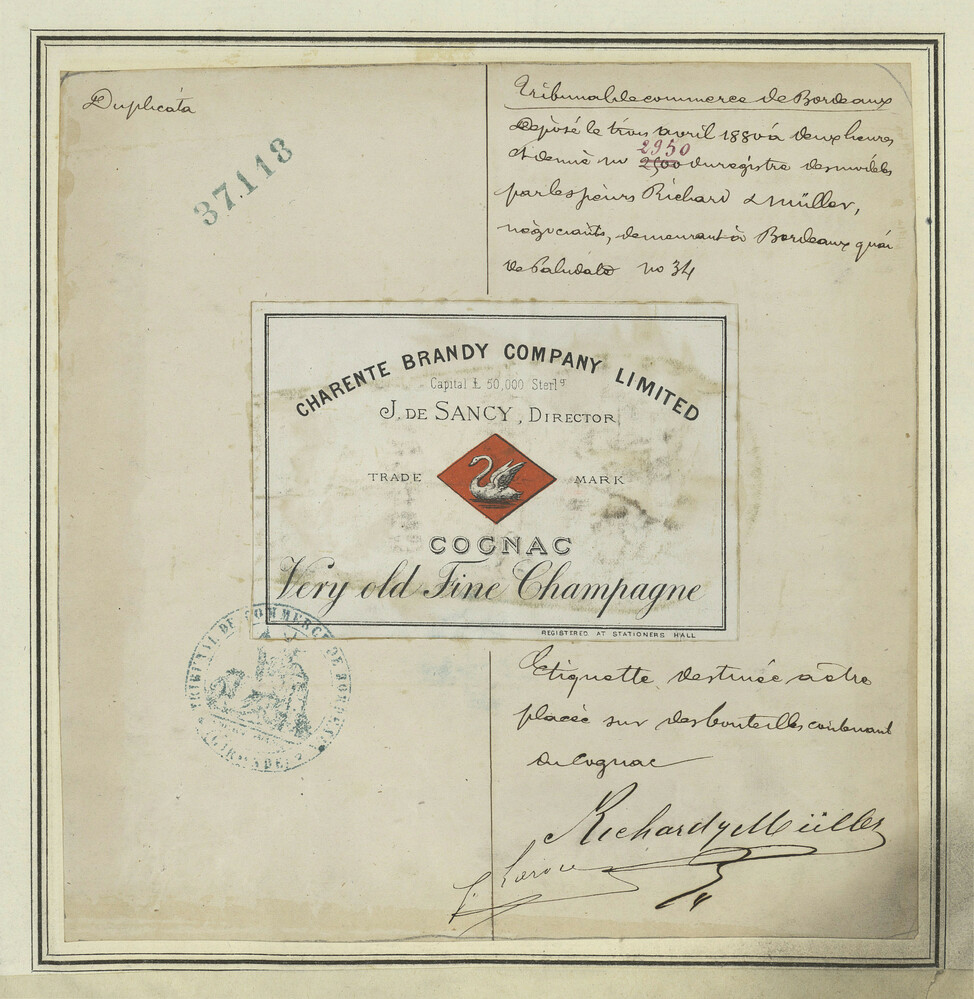 Duplicata
37.118
Tribunal de commerce de Bordeaux
Déposé le trois avril 1880 à deux heures
et demie no 2500 2950 du registre des modèles
par les sieurs Richard & Müller,
négociants, demeurant à Bordeaux quai
de Paludate no 34
CHARENTE BRANDY COMPANY LIMITED
Capital £ 50,000 Sterlg
J. DE SANCY, DIRECTOR
TRADE MARK
COGNAC
Very old Fine Champagne
REGISTERED AT STATIONERS HALL
TRIBUNAL DE COMMERCE DE BORDEAUX
(GIRONDE)
Etiquette destinée à être
placée sur des bouteilles contenant
du Cognac
Richard & Müller